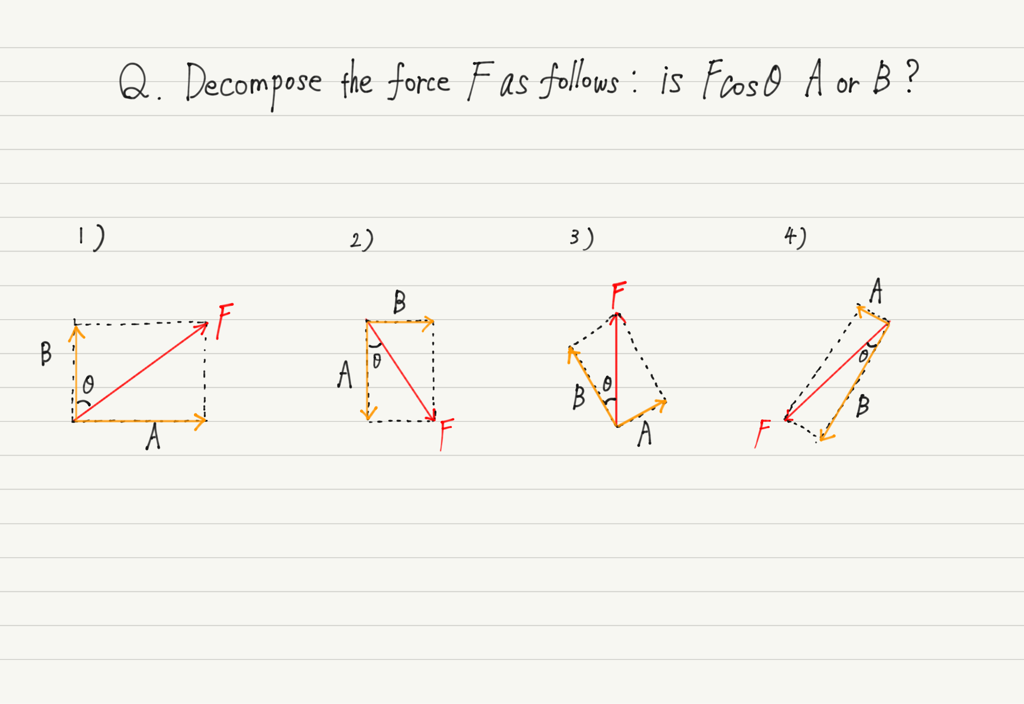 Q. Decompose the force F as follows: is Fcosθ A or B?
1) 2) 3) 4)
F B θ A
B A θ F
F θ B A
A θ B F